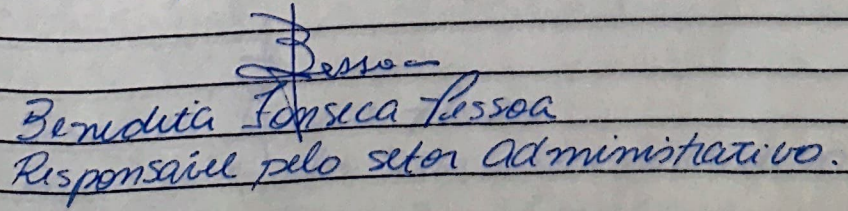 BPessoa
Benedita Fonseca Pessoa
Responsável pelo setor administrativo.